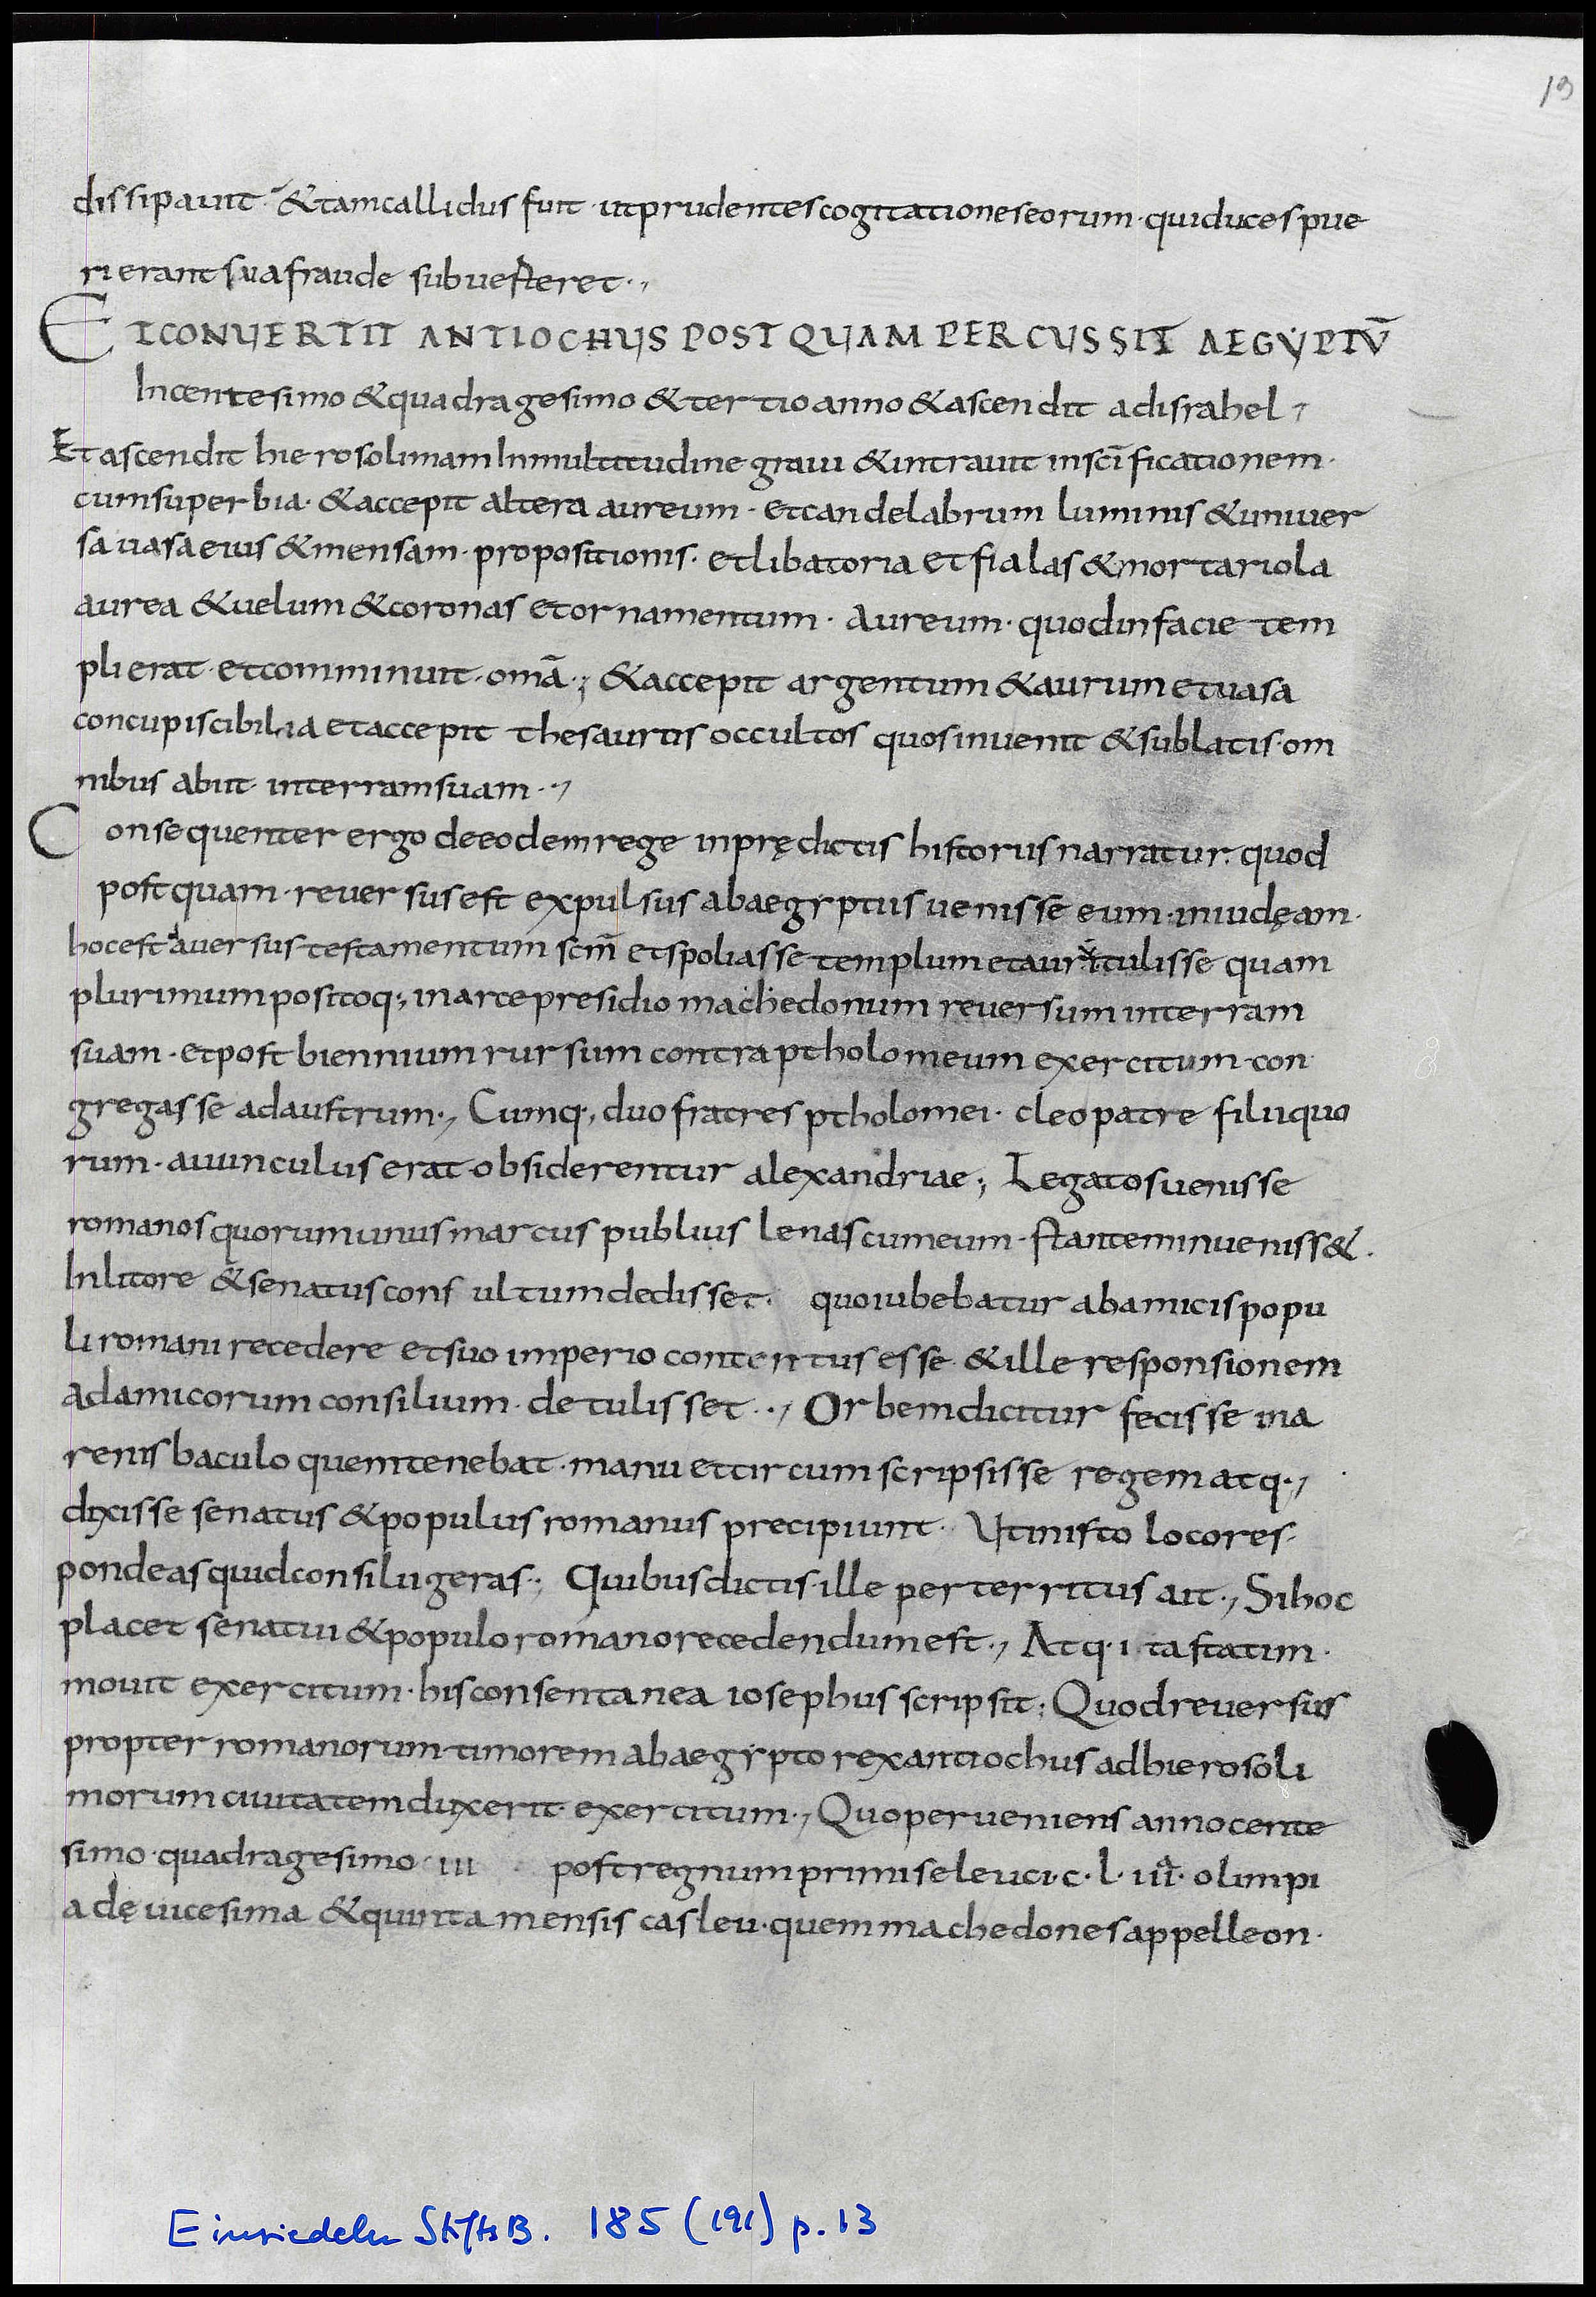 13
dissipauit · & tam callidus fuit · ut prudentes cogitationes eorum · qui duces pue
ri erant sua fraude subuerteret ·,
ET CONUERTIT ANTIOCHUS POSTQUAM PERCUSSIT AEGYPTŪ
In centesimo & quadragesimo & tertio anno & ascendit ad israhel,
Et ascendit hierosolimam In multitudine graui & intrauit in sc̄ificationem ·
cum superbia · & accepit altera aureum · et candelabrum luminis & uniuer
sa uasa eius & mensam · propositionis · et libatoria et fialas & mortariola
aurea & uelum & coronas et ornamentum · Aureum · quod in facie tem
pli erat · et comminuit · om̄a ·; & accepit argentum & aurum et uasa
concupiscibilia et accepit thesauros occultos quos inuenit & sublatis · om
nibus abiit in terram suam ·,
Consequenter ergo de eodem rege in prędictis historiis narratur · quod
postquam · reuersus est expulsus ab aegyptus uenisse eum · in iudęam ·
hoc est aduersus testamentum sc̄m et spoliasse templum et auri tulisse quam
plurimum positoq·; in arce presidio machedonum reuersum in terram
suam · et post biennium rursum contra ptholomeum exercitum · con
gregasse ad austrum ·, Cumq·, duo fratres ptholomei · cleopatre filii quo
rum · auunculus erat obsiderentur alexandriae ·; Legatos uenisse
romanos quorum unus marcus publius lenas cum eum · stantem inueniss& ·
In litore & senatus consultum dedisset · quo iubebatur ab amicis popu
li romani recedere et suo imperio contentus esse & ille responsionem
ad amicorum consilium · detulisset ·, Orbem dicitur fecisse in a
renis baculo quem tenebat · manu et circumscripsisse regem atq·,
dixisse senatus & populus romanus precipiunt · Ut in isto loco res
pondeas quid consilii geras ·; Quibus dictis · ille perterritus ait ·, Si hoc
placet senatui & populo romano recedendum est ·, Atq· ita statim ·
mouit exercitum · his consentanea iosephus scripsit · Quod reuersus
propter romanorum timorem ab aegypto rex antiochus ad hierosoli
morum ciuitatem duxerit · exercitum ·, Quo perueniens anno cente
simo · quadragesimo · iii post regnum primi seleuci · c · l · iii · olimpi
adę uicesima & quinta mensis casleu · quem machedones appelleon ·
Einsiedeln StiftsB. 185 (191) p. 13